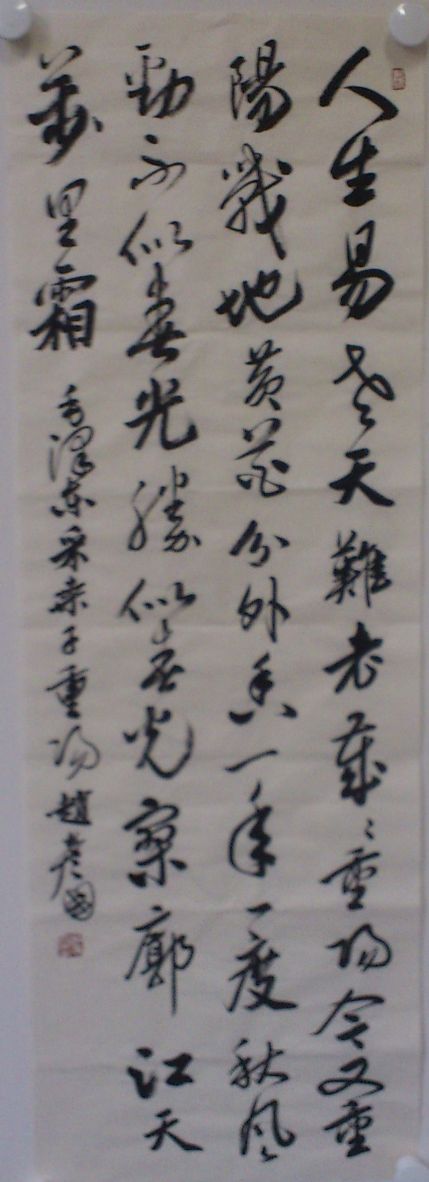 人生易老天難老歲々重陽今又重
陽戰地黃花分外香一年一度秋風
勁不似春光勝似春光寥廓江天
萬里霜 毛澤東采桑子重陽 趙彥國